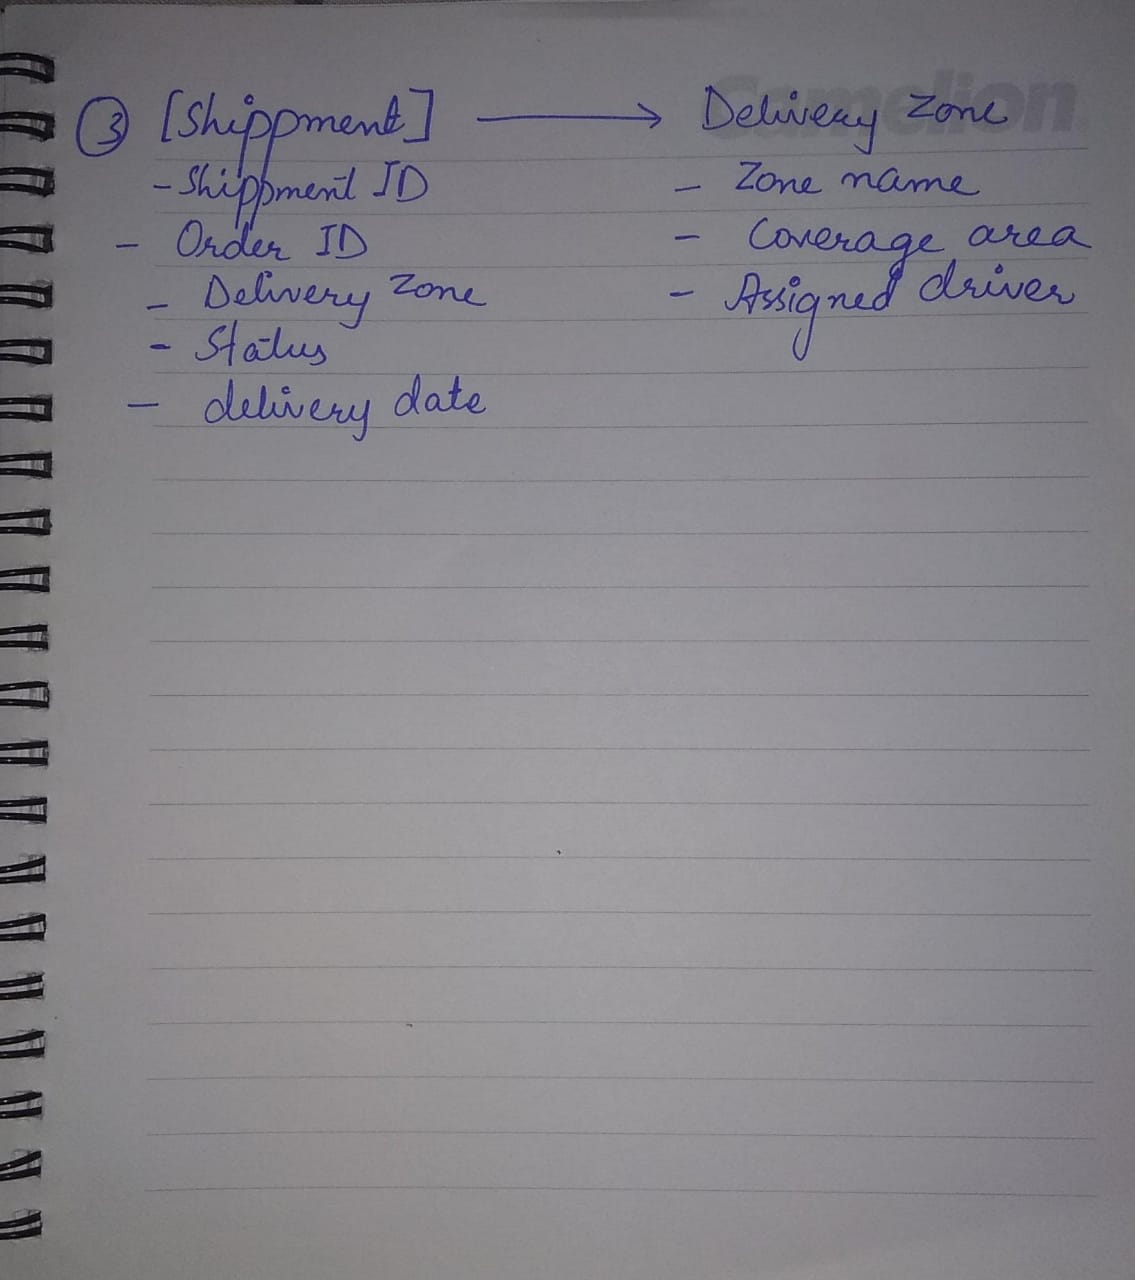 Camelion
③ [Shippment] ⟶ Delivery Zone
- Shippment ID
- Order ID
- Delivery Zone
- Status
- delivery date
- Zone name
- Coverage area
- Assigned driver